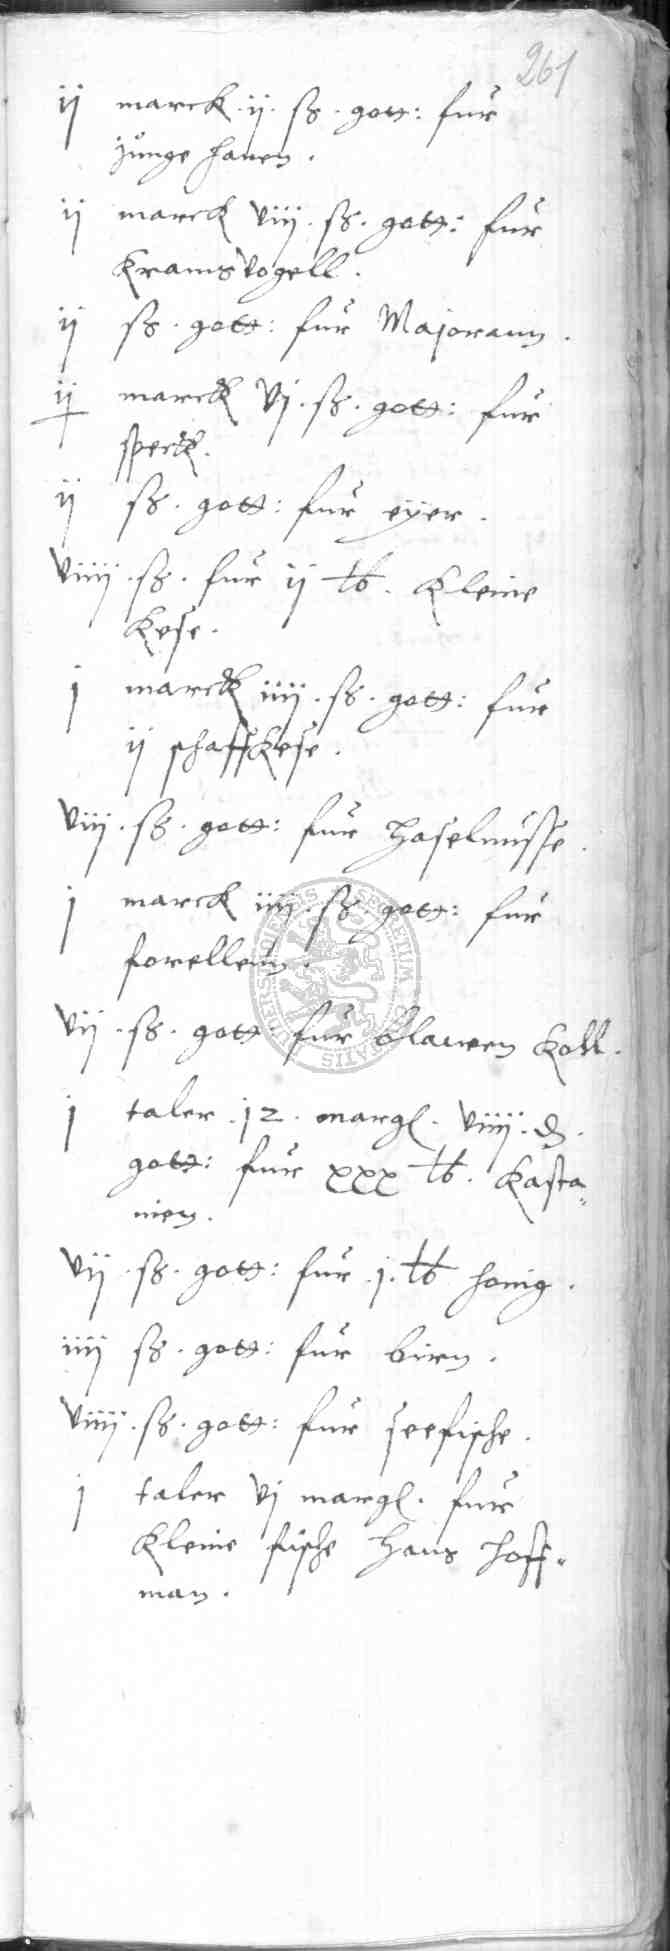 261
ij marck . ij . ß . gott: fur
junge hanen .
ij marck viij . ß . gott: fur
Kramsvogell .
ij ß . gott: fur Majorann .
ij marck vj . ß . gott: fur
speck .
ij ß . gott: fur eÿer .
viiij . ß . fur ij ℔ . Kleine
Kese .
j marck iiij . ß . gott: fur
ij schaffkese .
viij . ß . gott: fur Haselnusse .
j marck iiij . ß . gott: fur
forellenn .
vij . ß . gott: fur blawen Koll .
j taler . 12 . margl . viiij . ₰ .
gott: fur xxx ℔ . Kasta„
nien .
vij . ß . gott: fur . j . ℔ honig .
iiij ß . gott: fur birn .
viiij . ß . gott: fur seefische .
j taler vj margl . fur
Kleine fische Hans Hoff„
man .